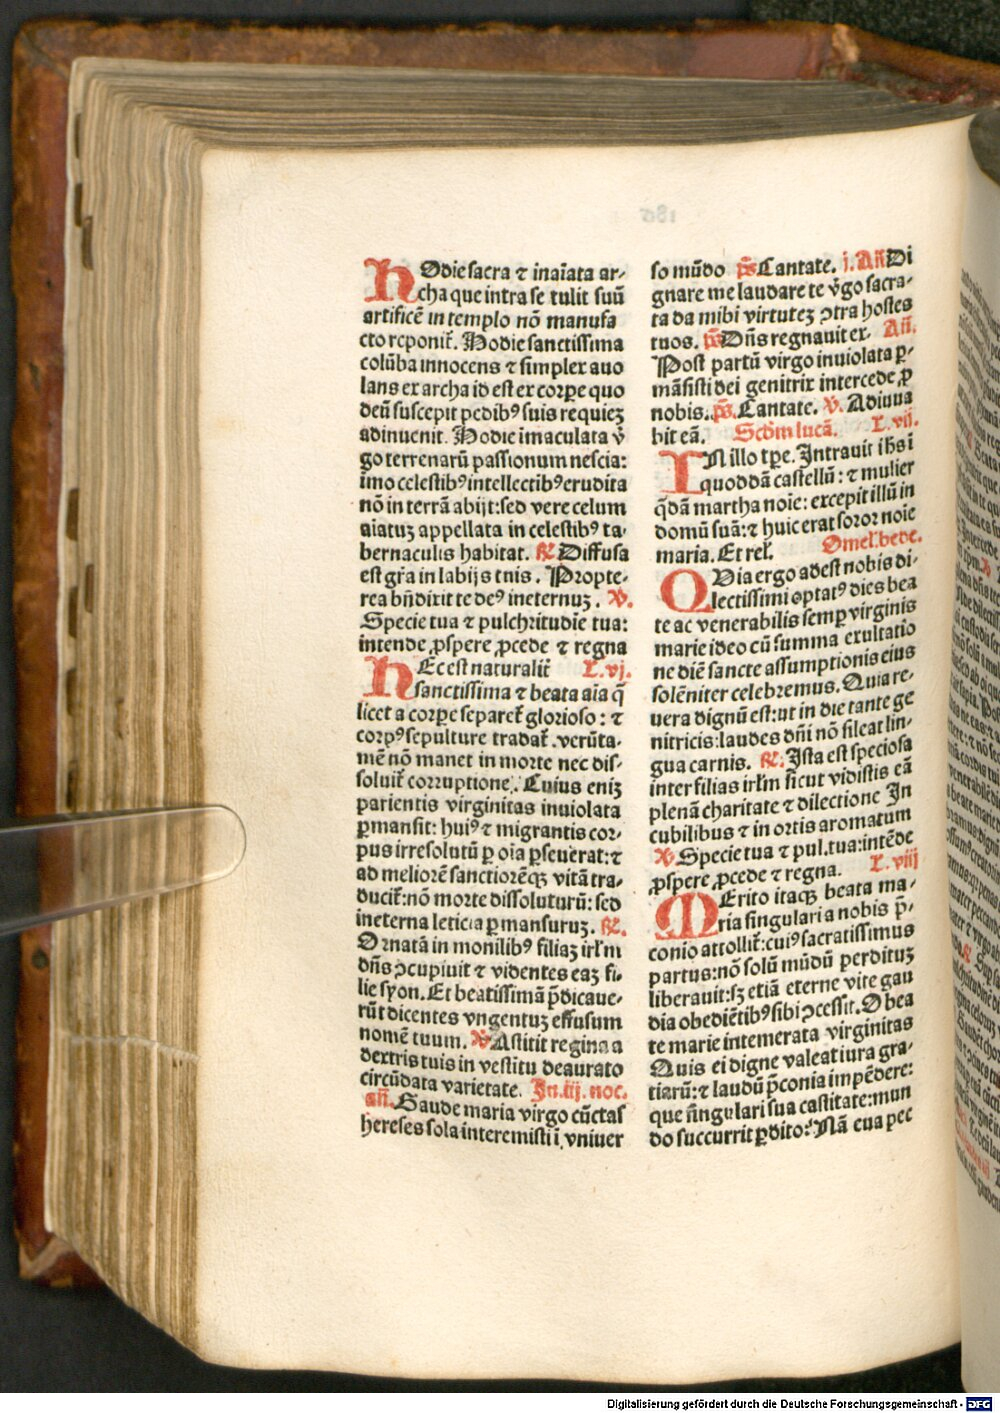 Hodie sacra ⁊ inaīata ar-
cha que intra se tulit suū
artificē in templo nō manufa
cto reponit̄. Hodie sanctissima
colūba innocens ⁊ simplex auo
lans ex archa id est ex corpe quo
deū suscepit pedibꝰ suis requieȝ
adinuenit. Hodie imaculata v̄
go terrenarū passionum nescia:
imo celestibꝰ intellectibꝰ erudita
nō in terrā abijt: sed vere celum
aiatuȝ appellata in celestibꝰ ta-
bernaculis habitat. ℟ Diffusa
est gr̄a in labijs tuis. Propte-
rea bn̄dixit te deꝰ ineternuȝ. ℣.
Specie tua ⁊ pulchritudīe tua:
intende ꝓspere ꝓcede ⁊ regna
HEc est naturalit̄ L. vj.
sanctissima ⁊ beata aīa q̄
licet a corpe separet̄ glorioso: ⁊
corpꝰ sepulture tradat̄. verūta-
mē nō manet in morte nec dis-
soluit̄ corruptione. Cuius eniȝ
parientis virginitas inuiolata
ꝑmansit: huiꝰ ⁊ migrantis cor-
pus irresolutū ꝑ oīa ꝑseuerat: ⁊
ad meliorē sanctiorēqȝ vitā tra-
ducit̄: nō morte dissoluturū: sed
ineterna leticia ꝑmansuruȝ. ℟.
Ornatā in monilibꝰ filiaȝ irl̄m
dn̄s ↄcupiuit ⁊ videntes eaȝ fi-
lie syon. Et beatissimā p̄dicaue-
rūt dicentes vngentuȝ effusum
nomē tuum. ℣ Astitit regina a
dextris tuis in vestitu deaurato
circūdata varietate. In .iij. noc.
an̄. Gaude maria virgo cūctas
hereses sola interemisti ī vniuer
so mūdo p̄s Cantate. j. An̄ Di
gnare me laudare te v̄go sacra-
ta da mihi virtuteȝ ↄtra hostes
tuos. p̄s Dn̄s regnauit ex. An̄.
Post partū virgo inuiolata ꝑ-
māsisti dei genitrix intercede ꝓ
nobis. p̄s. Cantate. ℣. Adiuua
bit eā. Scd̄m lucā. L. vij.
IN illo tꝑe. Intrauit ih̄s ī
quoddā castellū: ⁊ mulier
q̄dā martha noīe: excepit illū in
domū suā: ⁊ huic erat soror noīe
maria. Et rel̄. Omel̄. bede.
QVia ergo adest nobis di-
lectissimi optatꝰ dies bea
te ac venerabilis semꝑ virginis
marie ideo cū summa exultatio
ne diē sancte assumptionis eius
solēniter celebremus. Quia re-
uera dignū est: ut in die tante ge
nitricis: laudes dn̄i nō sileat lin-
gua carnis. ℟. Ista est speciosa
inter filias irl̄m sicut vidistis eā
plenā charitate ⁊ dilectione In
cubilibus ⁊ in ortis aromatum
℣ Specie tua ⁊ pul. tua: intēde
ꝓspere ꝓcede ⁊ regna. L. viij
MErito itaqȝ beata ma-
ria singulari a nobis p̄-
conio attollit̄: cuiꝰ sacratissimus
partus: nō solū mūdū perdituȝ
liberauit: sȝ etiā eterne vite gau
dia obediētibꝰ sibi ↄcessit. O bea
te marie intemerata virginitas
Quis ei digne valeat iura gra-
tiarū: ⁊ laudū p̄conia impēdere:
que singulari sua castitate: mun
do succurrit ꝑdito: Nā eua pec
Digitalisierung gefördert durch die Deutsche Forschungsgemeinschaft - DFG